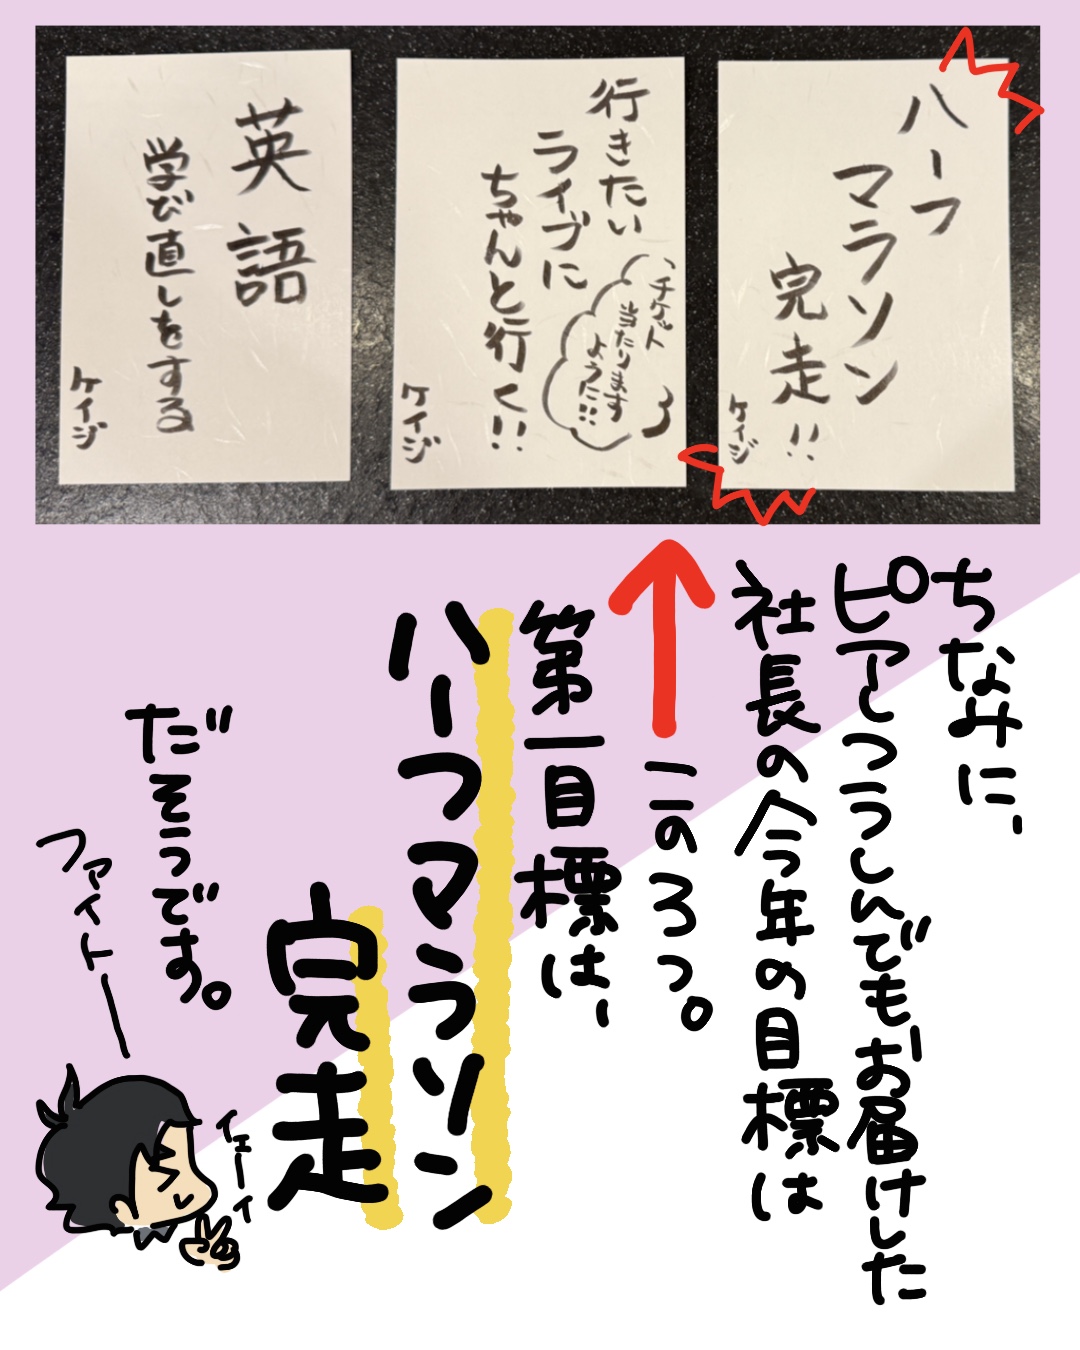 ハーフ
マラソン
完走!!
ケイジ
行きたい
ライブに
ちゃんと行く!!
チケット
当たります
ように!!
ケイジ
英語
学び直しをする
ケイジ
ちなみに、
ピアしつうしんでも、お届けした
社長の今年の目標は
この3つ。
第一目標は、
ハーフマラソン
完走
だそうです。
ファイトー
イェーイ